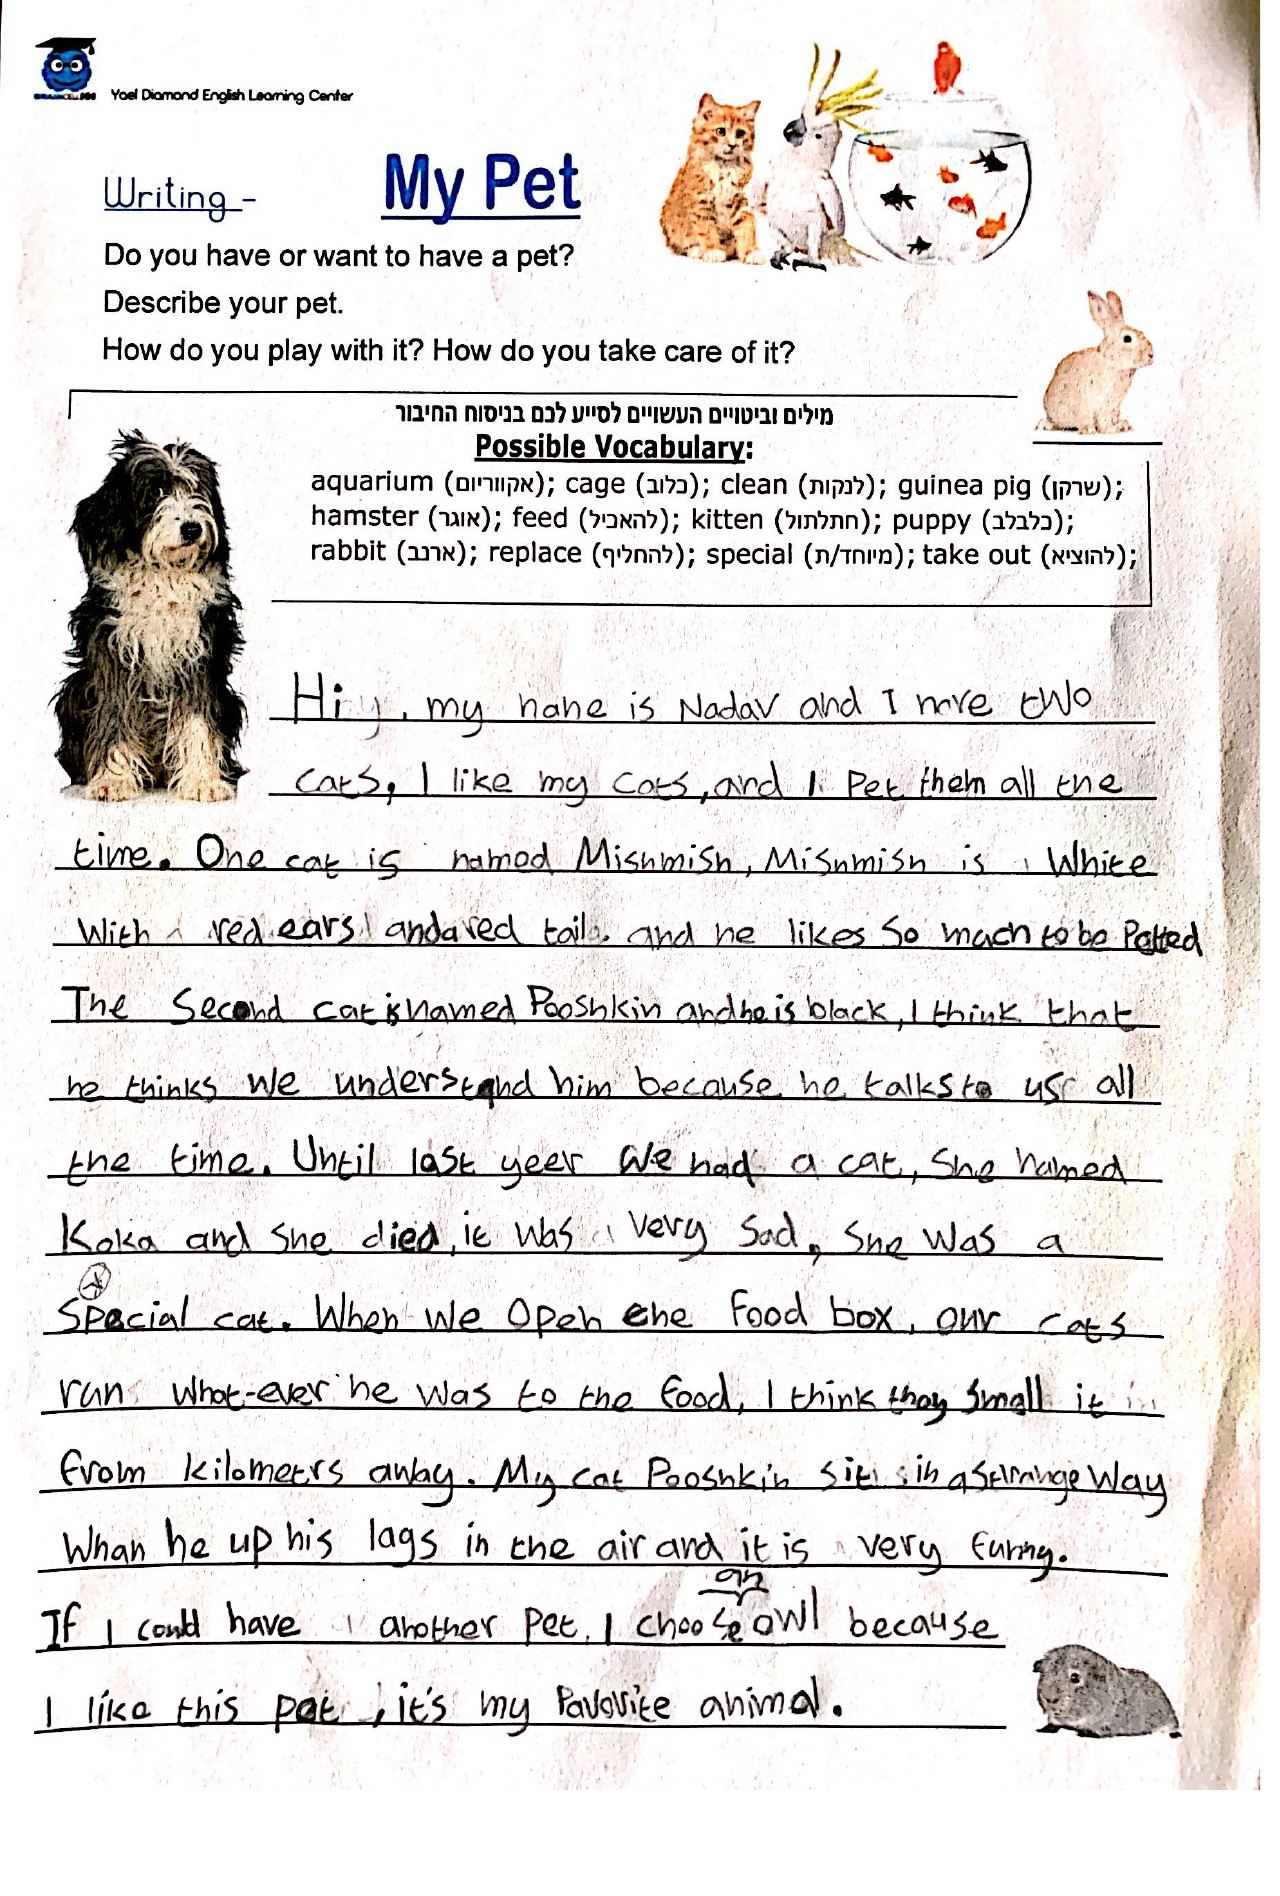 Yael Diamond English Learning Center
Writing -
My Pet
Do you have or want to have a pet?
Describe your pet.
How do you play with it? How do you take care of it?
מילים וביטויים העשויים לסייע לכם בניסוח החיבור
Possible Vocabulary:
aquarium (אקווריום); cage (כלוב); clean (לנקות); guinea pig (שרקן);
hamster (אוגר); feed (להאכיל); kitten (חתלתול); puppy (כלבלב);
rabbit (ארנב); replace (להחליף); special (מיוחד/ת); take out (להוציא);
Hi, my name is Nadav and I have two
cats, I like my cats, and I Pet them all the
time. One cat is named Mishmish, Mishmish is White
With red ears and a red tail. and he likes So mach to be Patted
The Second cat is named Pooshkin and he is black, I think that
he thinks We understand him because he talks to us all
the time. Until last yeer We had a cat, She named
Koka and She died, it was very Sad, She was a
Special cat. When We Open the Food box, our cats
run what-ever he was to the food, I think they Small it
from kilometrs away. My cat Pooshkin Sit in a Strange Way
Whan he up his lags in the air and it is very funny.
an
If I could have another pet, I choose owl because
I like this pat, it's my favorite animal.